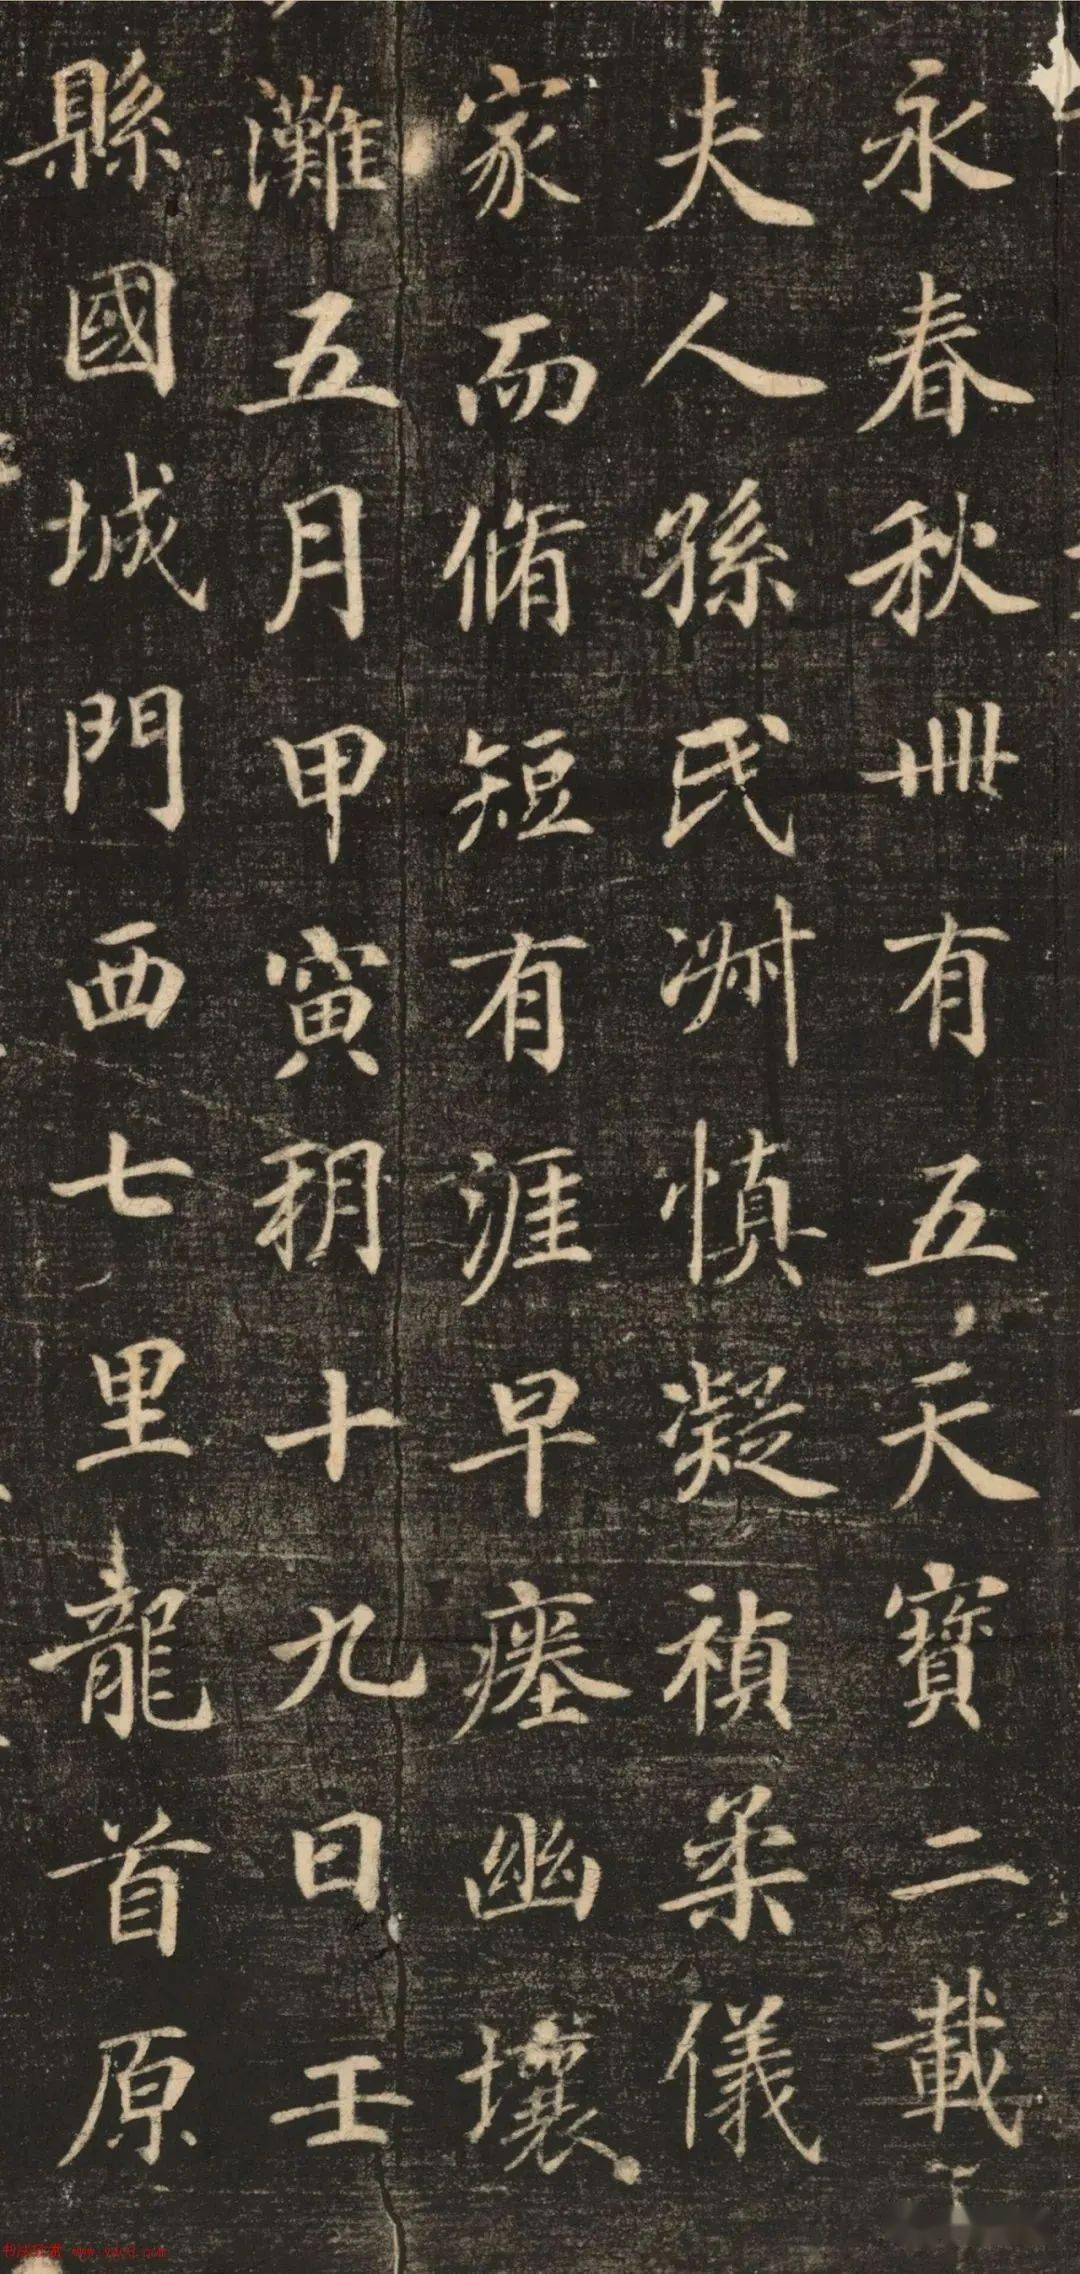 永春秋卌有五天寶二載
夫人孫氏淑慎凝禎柔儀
家而脩短有涯早瘞幽壤
灘五月甲寅朔十九日壬
縣國城門西七里龍首原